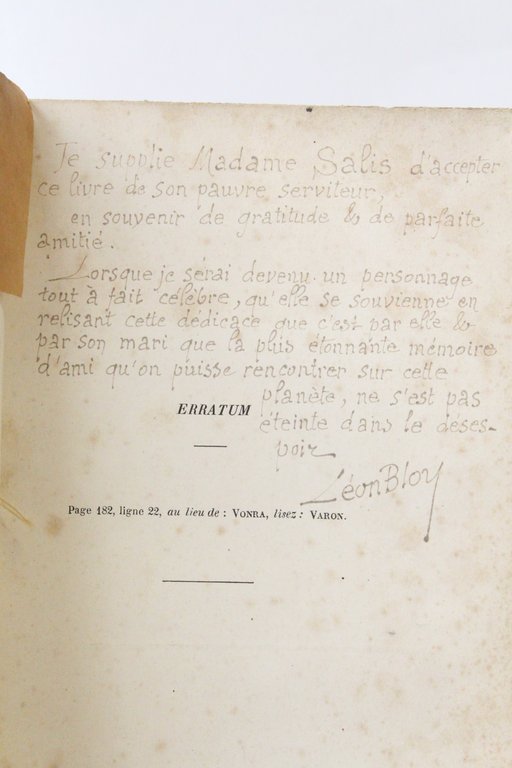 Je supplie Madame Salis d'accepter
ce livre de son pauvre serviteur,
en souvenir de gratitude & de parfaite
amitié.
Lorsque je serai devenu un personnage
tout à fait célèbre, qu'elle se souvienne en
relisant cette dédicace que c'est par elle &
par son mari que la plus étonnante mémoire
d'ami qu'on puisse rencontrer sur cette
planète, ne s'est pas
éteinte dans le déses-
poir
Léon Bloy
ERRATUM
Page 182, ligne 22, au lieu de : VONRA, lisez : VARON.